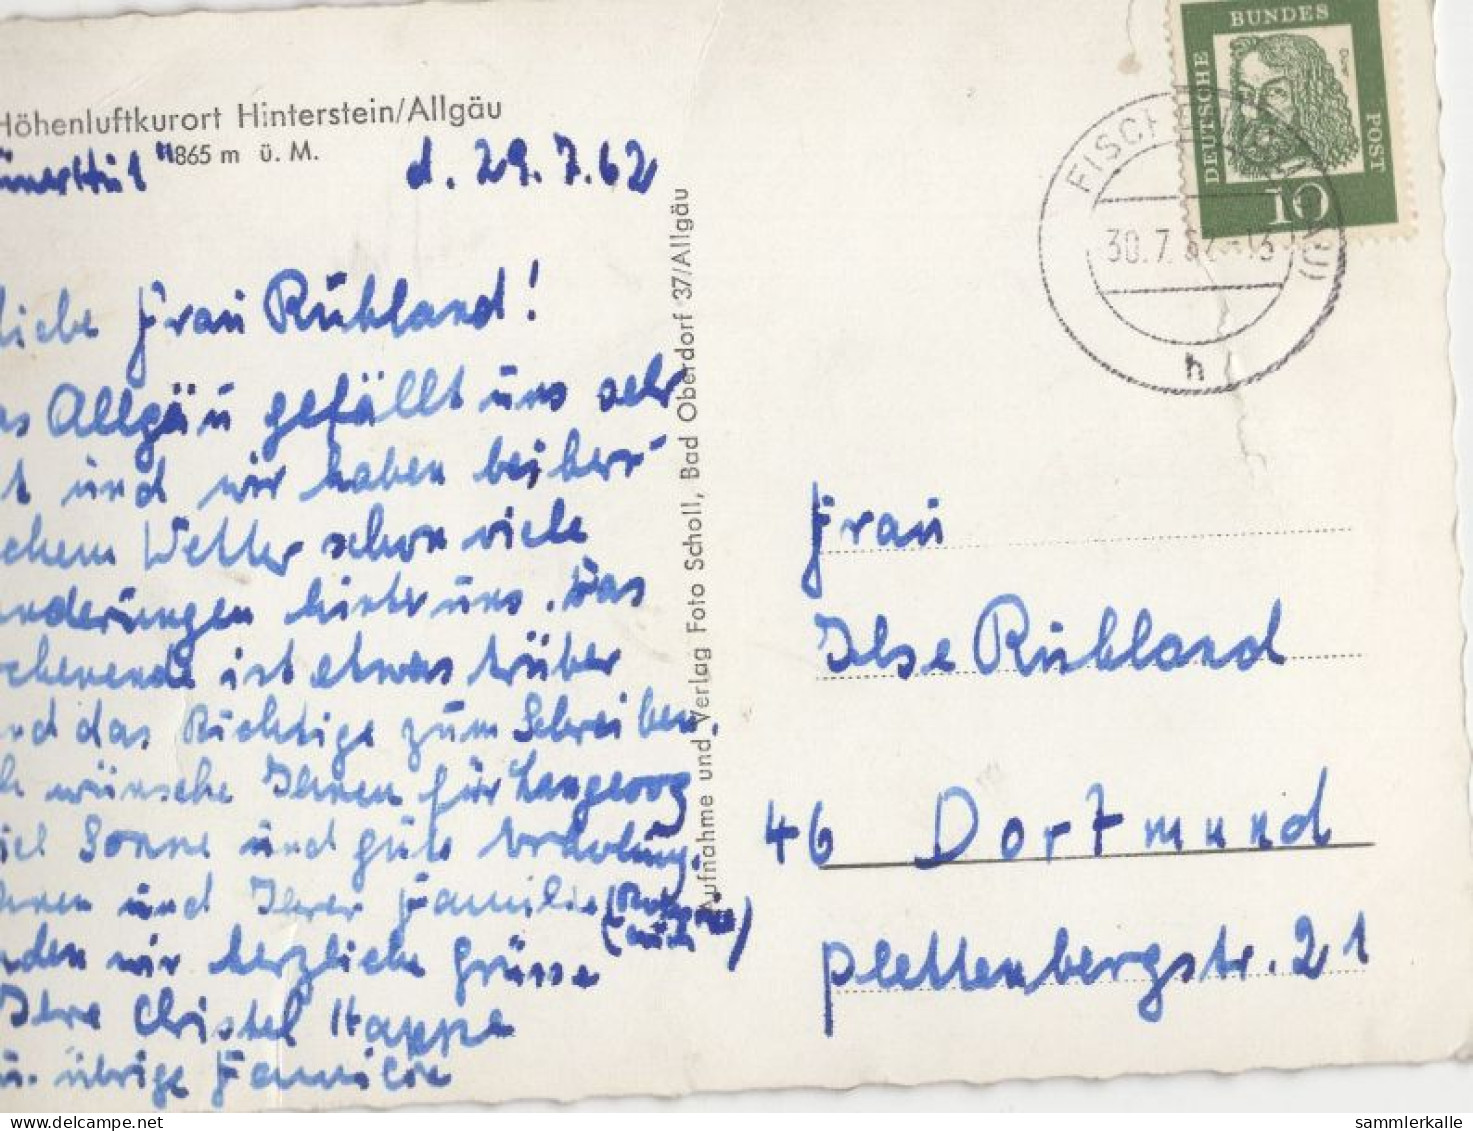 Höhenluftkurort Hinterstein/Allgäu
865 m ü. M.
d. 29.7.62
liebe Frau Rühland!
as Allgäu gefällt uns sehr
t und wir haben bei herr-
chem Wetter schon viele
anderungen hinter uns. Das
ochenende ist etwas trüber
und das Richtige zum Schreiben.
ch wünsche Ihnen für Langeoog
iel Sonne und gute Erholung.
hnen und Ihrer Familie (
auch)
nden wir herzliche Grüsse
Ihre Christel Happe
u. übrige Familie
Aufnahme und Verlag Foto Scholl, Bad Oberdorf 37/Allgäu
DEUTSCHE BUNDES POST
Dürer
10
FISCH
30.7.62-13
h
Frau
Ilse Rühland
46 Dortmund
Plettenbergstr. 21
sammlerkalle